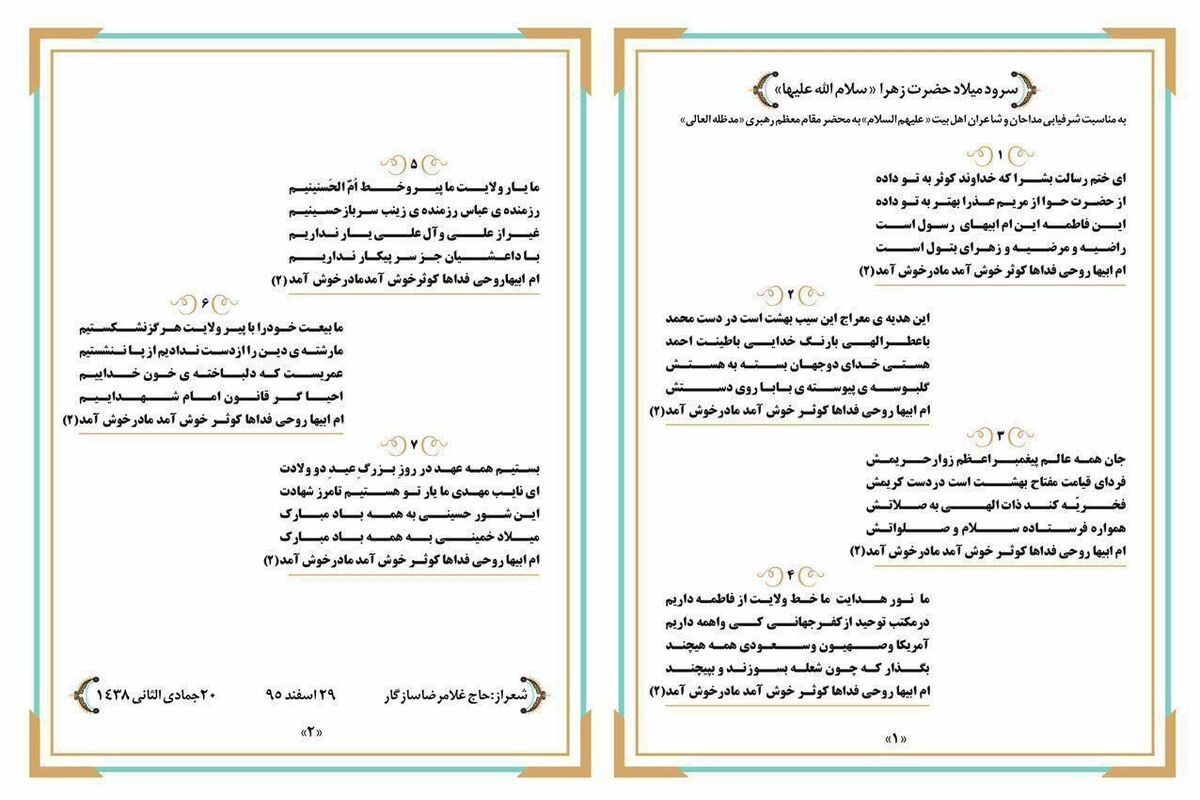 سرود میلاد حضرت زهرا «سلام الله علیها»
به مناسبت شرفیابی مداحان و شاعران اهل بیت «علیهم السلام» به محضر مقام معظم رهبری «مدظله العالی»
۱
ای ختم رسالت بشرا که خداوند کوثر به تو داده
از حضرت حوا از مریم عذرا بهتر به تو داده
این فاطمه این ام ابیهای رسول است
راضیه و مرضیه و زهرای بتول است
ام ابیها روحی فداها کوثر خوش آمد مادر خوش آمد (۲)
۲
این هدیه ی معراج این سیب بهشت است در دست محمد
با عطر الهی با رنگ خدایی با طینت احمد
هستی خدای دوجهان بسته به هستش
گلبوسه ی پیوسته ی بابا روی دستش
ام ابیها روحی فداها کوثر خوش آمد مادر خوش آمد (۲)
۳
جان همه عالم پیغمبر اعظم زوار حریمش
فردای قیامت مفتاح بهشت است دردست کریمش
فخریّه کند ذات الهی به صلاتش
همواره فرستاده سلام و صلواتش
ام ابیها روحی فداها کوثر خوش آمد مادر خوش آمد (۲)
۴
ما نور هدایت ما خط ولایت از فاطمه داریم
درمکتب توحید از کفر جهانی کی واهمه داریم
آمریکا وصهیون وسعودی همه هیچند
بگذار که چون شعله بسوزند و بپیچند
ام ابیها روحی فداها کوثر خوش آمد مادر خوش آمد (۲)
«۱»
۵
ما یار ولایت ما پیرو خط اُمّ الحَسنینیم
رزمنده ی عباس رزمنده ی زینب سرباز حسینیم
غیر از علی وآل علی یار نداریم
با داعشیان جز سر پیکار نداریم
ام ابیها روحی فداها کوثر خوش آمد مادر خوش آمد (۲)
۶
ما بیعت خود را با پیر ولایت هرگز نشکستیم
ما رشته ی دین را از دست ندادیم از پا ننشستیم
عمریست که دلباخته ی خون خداییم
احیا گر قانون امام شهداییم
ام ابیها روحی فداها کوثر خوش آمد مادر خوش آمد (۲)
۷
بستیم همه عهد در روزِ بزرگِ عیدِ دو ولادت
ای نایب مهدی ما یار تو هستیم تا مرز شهادت
این شور حسینی به همه باد مبارک
میلاد خمینی به همه باد مبارک
ام ابیها روحی فداها کوثر خوش آمد مادر خوش آمد (۲)
شعر از: حاج غلامرضا سازگار ۲۹ اسفند ۹۵ ۲۰جمادی الثانی ۱۴۳۸
«۲»